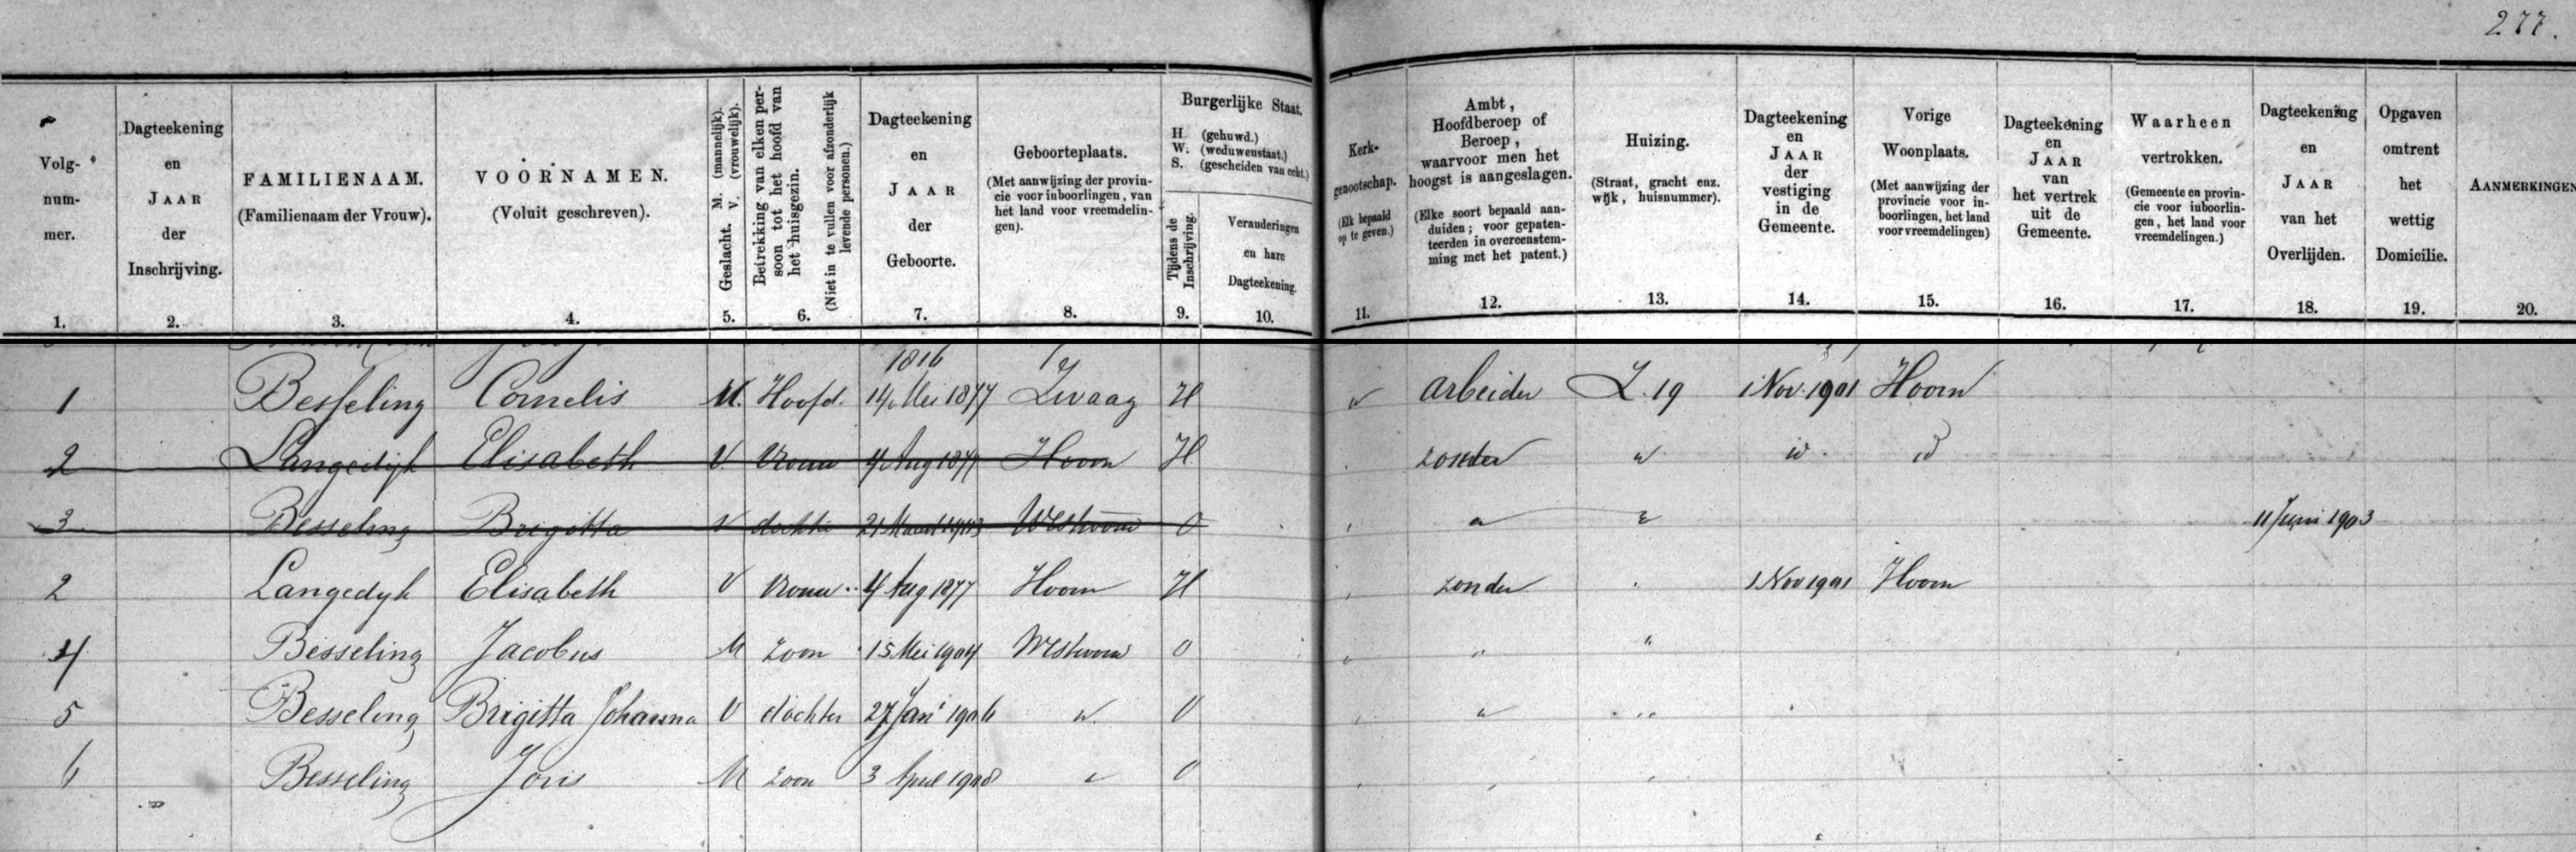 277.
Volg-
num-
mer.
1.
Dagteekening
en
JAAR
der
Inschrijving.
2.
FAMILIENAAM.
(Familienaam der Vrouw).
3.
VOORNAMEN.
(Voluit geschreven).
4.
Geslacht. M. (mannelijk). V. (vrouwelijk).
5.
Betrekking van elken per-
soon tot het hoofd van
het huisgezin.
(Niet in te vullen voor afzonderlijk
levende personen.)
6.
Dagteekening
en
JAAR
der
Geboorte.
7.
Geboorteplaats.
(Met aanwijzing der provin-
cie voor inboorlingen, van
het land voor vreemdelin-
gen).
8.
Burgerlijke Staat.
H. (gehuwd.)
W. (weduwenstaat.)
S. (gescheiden van echt.)
Tijdens de
Inschrijving.
9.
Veranderingen
en hare
Dagteekening.
10.
Kerk-
genootschap.
(Elk bepaald
op te geven.)
11.
Ambt,
Hoofdberoep of
Beroep,
waarvoor men het
hoogst is aangeslagen.
(Elke soort bepaald aan-
duiden; voor gepaten-
teerden in overeenstem-
ming met het patent.)
12.
Huizing.
(Straat, gracht enz.
wijk, huisnummer).
13.
Dagteekening
en
JAAR
der
vestiging
in de
Gemeente.
14.
Vorige
Woonplaats.
(Met aanwijzing der
provincie voor in-
boorlingen, het land
voor vreemdelingen)
15.
Dagteekening
en
JAAR
van
het vertrek
uit de
Gemeente.
16.
Waarheen
vertrokken.
(Gemeente en provin-
cie voor inboorlin-
gen, het land voor
vreemdelingen.)
17.
Dagteekening
en
JAAR
van het
Overlijden.
18.
Opgaven
omtrent
het
wettig
Domicilie.
19.
AANMERKINGEN
20.
1816
1 Besseling Cornelis M. Hoofd. 14 Mei 1877 Zwaag H " arbeider Z. 19 1 Nov. 1901 Hoorn
2 Langedijk Elisabeth V Vrouw 4 Aug 1877 Hoorn H. zonder " id id
3 Besseling Brigitta V dochter 21 Maart 1903 Westwoud O " " 11 Juni 1903
2 Langedijk Elisabeth V Vrouw 4 Aug 1877 Hoorn H zonder " 1 Nov 1901 Hoorn
4 Besseling Jacobus M zoon 15 Mei 1904 Westwoud O " " "
5 Besseling Brigitta Johanna V dochter 27 Jan 1906 " O " "
6 Besseling Joris M zoon 3 April 1908 " O " "